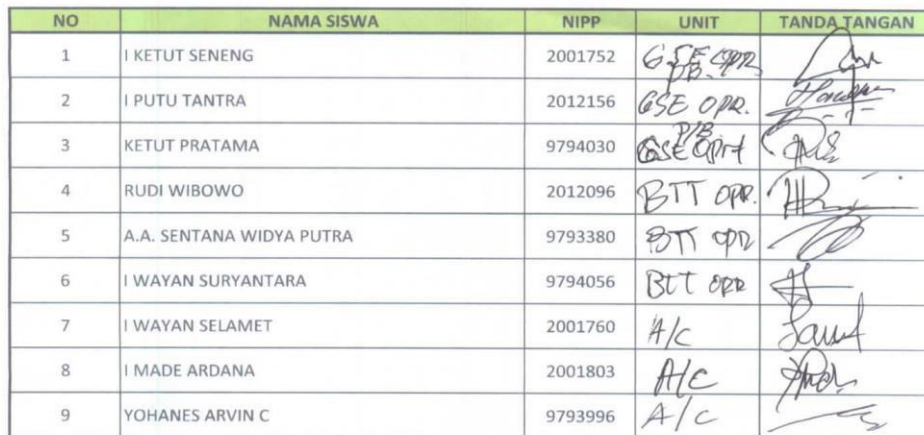 NO NAMA SISWA NIPP UNIT TANDA TANGAN
1 I KETUT SENENG 2001752 GSE OPR
PB.
2 I PUTU TANTRA 2012156 GSE OPR.
P/B
3 KETUT PRATAMA 9794030 GSE Opr
4 RUDI WIBOWO 2012096 BTT OPR.
5 A.A. SENTANA WIDYA PUTRA 9793380 BTT OPR
6 I WAYAN SURYANTARA 9794056 BTT OPR
7 I WAYAN SELAMET 2001760 A/C
8 I MADE ARDANA 2001803 A/C
9 YOHANES ARVIN C 9793996 A/C